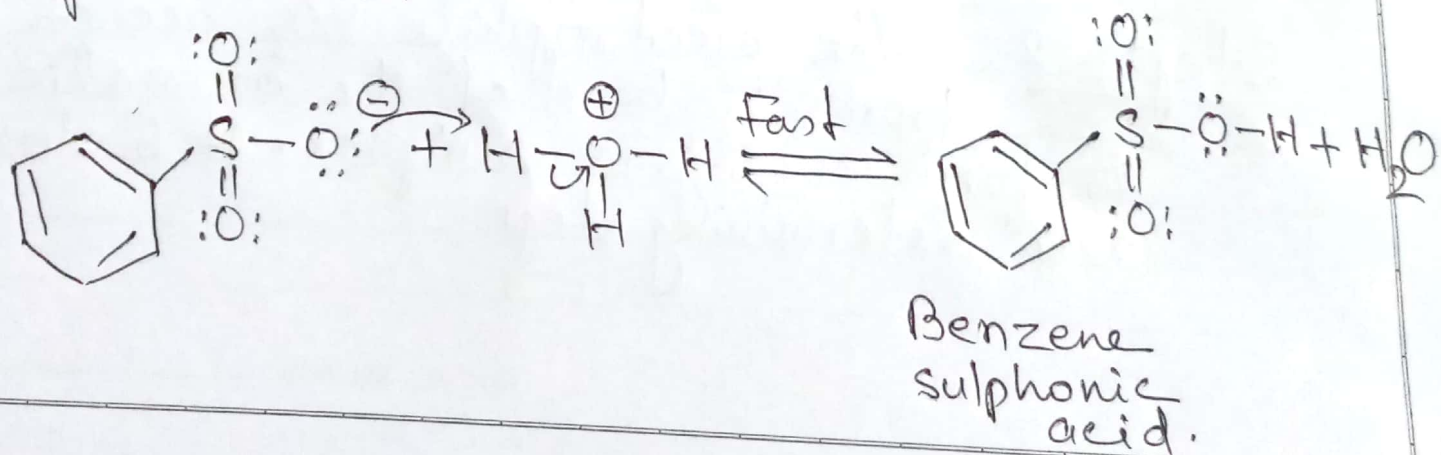 :O: :O:
|| ||
S—O:⊖ + H—O⊕—H Fast ⇌ S—O—H + H2O
|| | ||
:O: H :O:
Benzene
sulphonic
acid.